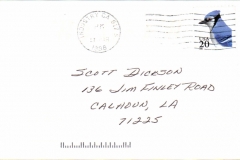 USA
20
Scott Dickson
136 Jim Finley Road
Calhoun, LA
71225